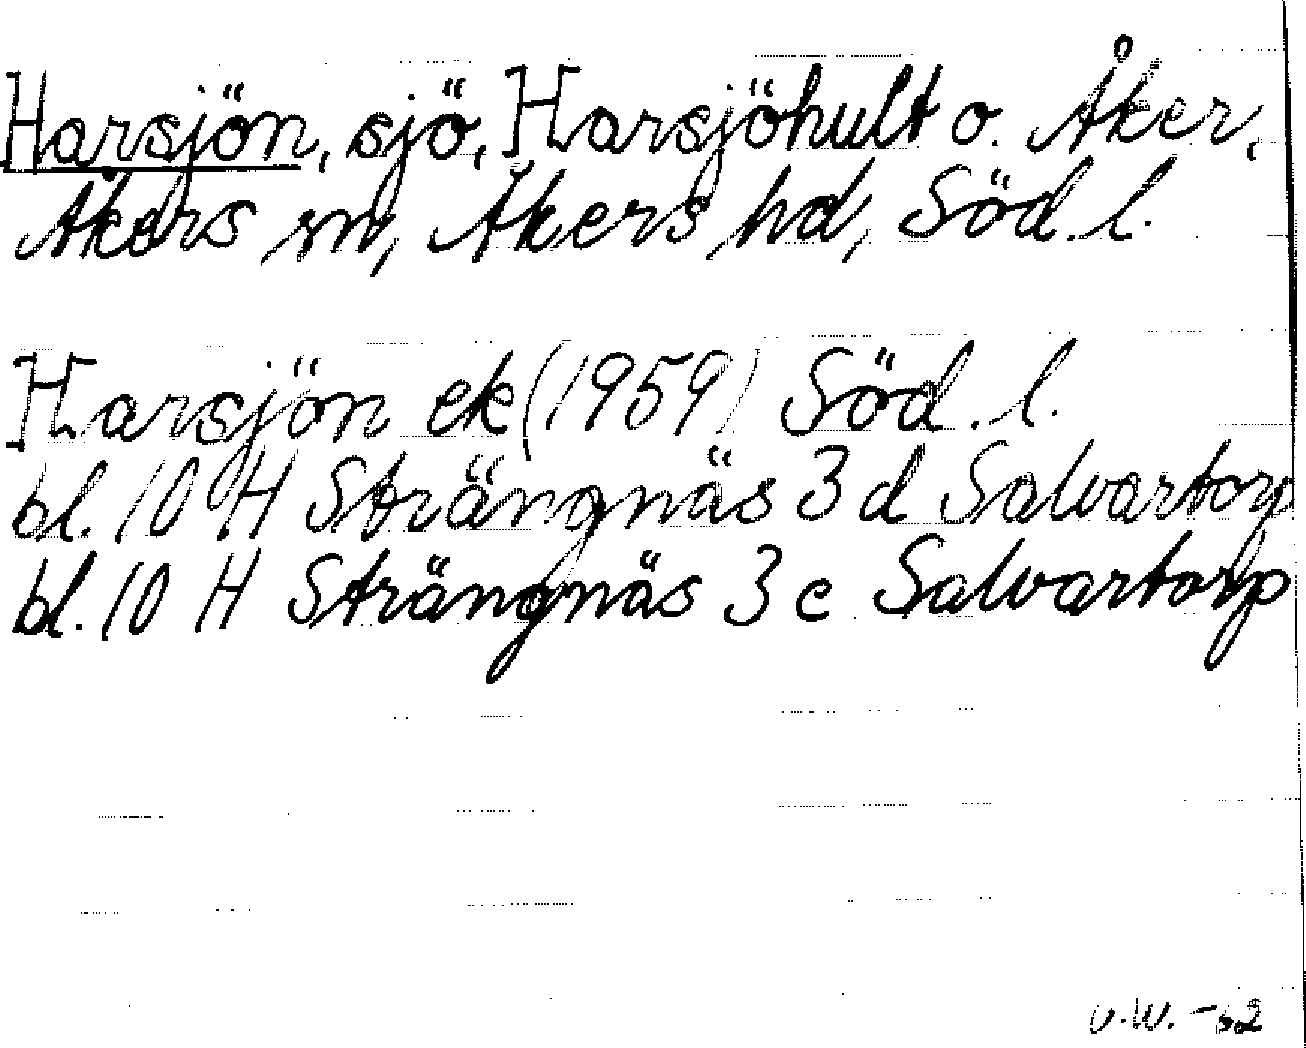 Harsjön, sjö, Harsjöhult o. Åker,
Åkers sn, Åkers hd, Söd. l.
Harsjön ek (1959) Söd. l.
bl. 10 H Strängnäs 3 d Salvartorp
bl. 10 H Strängnäs 3 e Salvartorp
v.W. -62